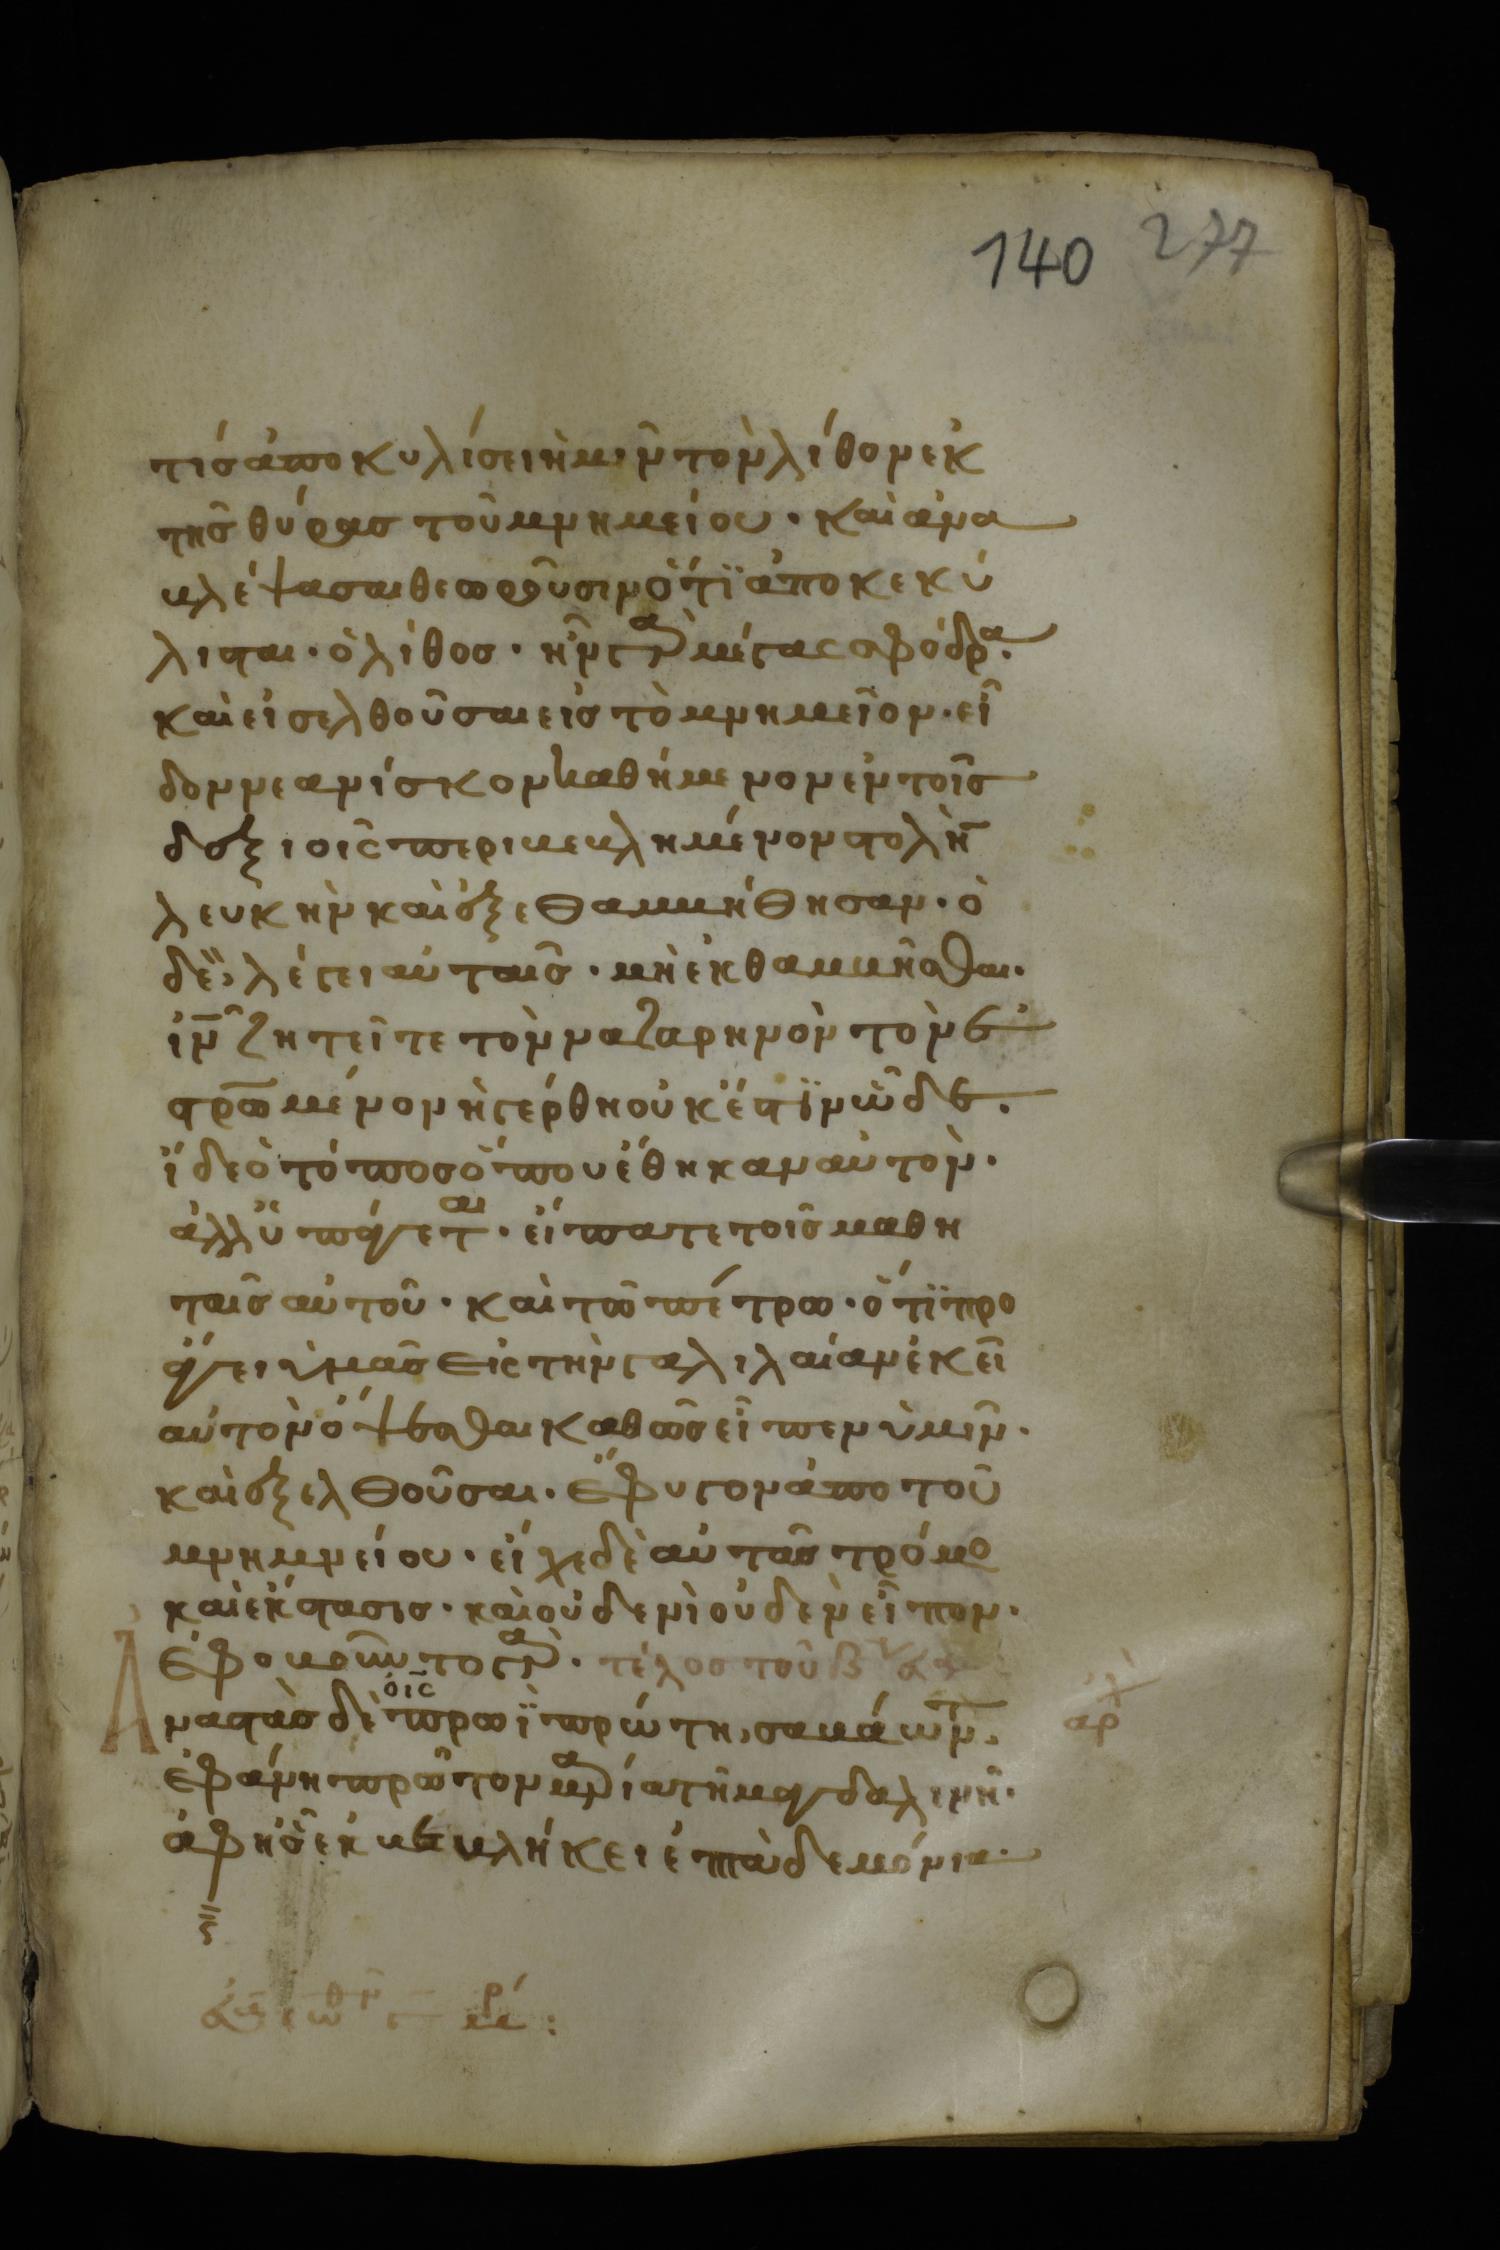 140 277
τίσ ἀποκυλίσει ἡμῖν τὸν λίθον ἐκ
τῆσ θύρασ τοῦ μνημείου · καὶ ἀνα
βλέψασαι θεωροῦσιν ὅτϊ ἀποκεκύ
λισται · ὁ λίθοσ · ἦν γὰρ μέγας σφόδρα ·
καὶ εἰσελθοῦσαι εἰσ τὸ μνημεῖον · εἶ
δον νεανίσκον καθήμενον ἐν τοῖσ
δεξιοῖς περιβεβλημένον στολὴν
λευκὴν καὶ ἐξεθαμβήθησαν · ὁ
δὲ λέγει αὐταῖσ · μὴ ἐκθαμβεῖσθαι ·
ἰν̅ ζητεῖτε τὸν ναζαρηνὸν τὸν ἐ
στρω̅μένον ἠγέρθη οὐκ ἔστϊν ὧδε ·
ἴδε ὁ τόποσ ὅπου ἔθηκαν αὐτὸν ·
ἀλλ ὑπάγεται · εἴπατε τοῖσ μαθη
ταῖσ αὐτοῦ · καὶ τῶ πέτρω · ὅτϊ προ
άγει ὑμᾶσ εἰς τὴν γαλιλαίαν ἐκεῖ
αὐτὸν ὄψεσθαι καθῶσ εἶπεν ὑμῖν ·
καὶ ἐξελθοῦσαι · ἔφυγον ἀπο τοῦ
μνημνείου · εἶχε δὲ αὐτὰσ τρόμο
καὶ ἔκστασισ · καὶ οὐδενὶ οὐδὲν εἶπον ·
ἐφοβοῦντο γάρ · τέλοσ τοῦ β
Ἀναστὰσ δὲ ὁ ις̅ πρωῒ πρώτη, σαββάτων ·
ἐφάνη πρῶτον μαρία τῆ μαγδαλινῆ ·
ἀφ ἧσ ἐκβεβλήκει ἑπτὰ δεμόνια ·